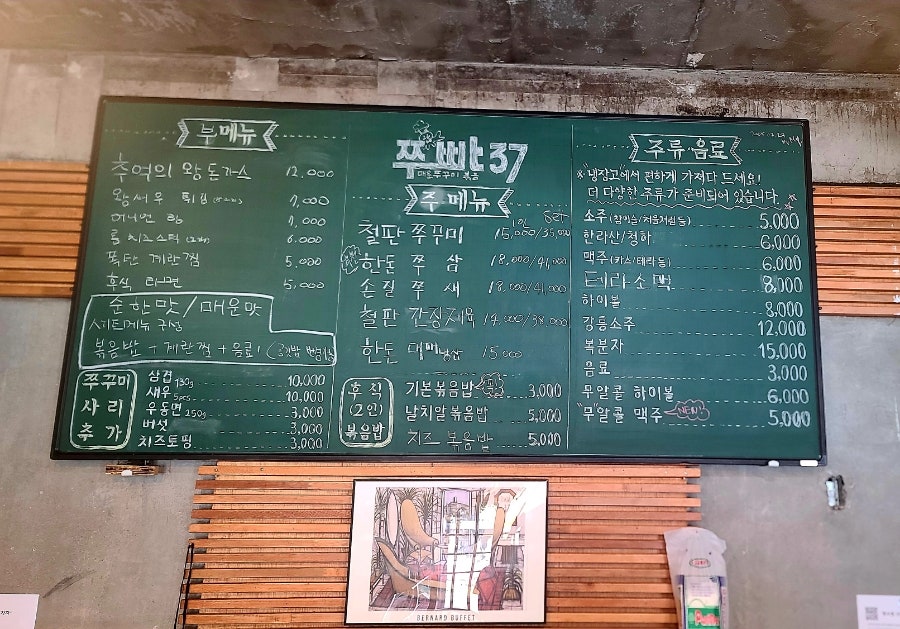 부메뉴
추억의 왕돈까스 12,000
왕새우 튀김 7,000
어니언 링 7,000
롱치즈스틱 6,000
폭탄 계란찜 5,000
후식 라면 5,000
순한맛/매운맛
세트메뉴 구성
볶음밥 + 계란찜 + 음료1
쭈꾸미
사리
추가
삼겹 130g 10,000
새우 5pcs 10,000
우동면 150g 3,000
버섯 3,000
치즈토핑 3,000
쭈빠37
매운쭈꾸미 볶음
주 메뉴
철판 쭈꾸미 15,000/35,000
한돈 쭈 삼 18,000/41,000
손질 쭈 새 18,000/41,000
철판 간장제육 14,000/38,000
한돈 15,000
후식
(2인)
볶음밥
기본볶음밥 3,000
날치알볶음밥 5,000
치즈 볶음밥 5,000
주류음료
※"냉장고"에서 편하게 가져다 드세요!
더 다양한 주류가 준비되어 있습니다.
소주(참이슬/처음처럼 등) 5,000
한라산/청하 6,000
맥주(카스/테라 등) 6,000
테라소맥 8,000
하이볼 8,000
강릉소주 12,000
복분자 15,000
음료 3,000
무알콜 하이볼 6,000
"무"알콜 맥주 NEW! 5,000
BERNARD BUFFET